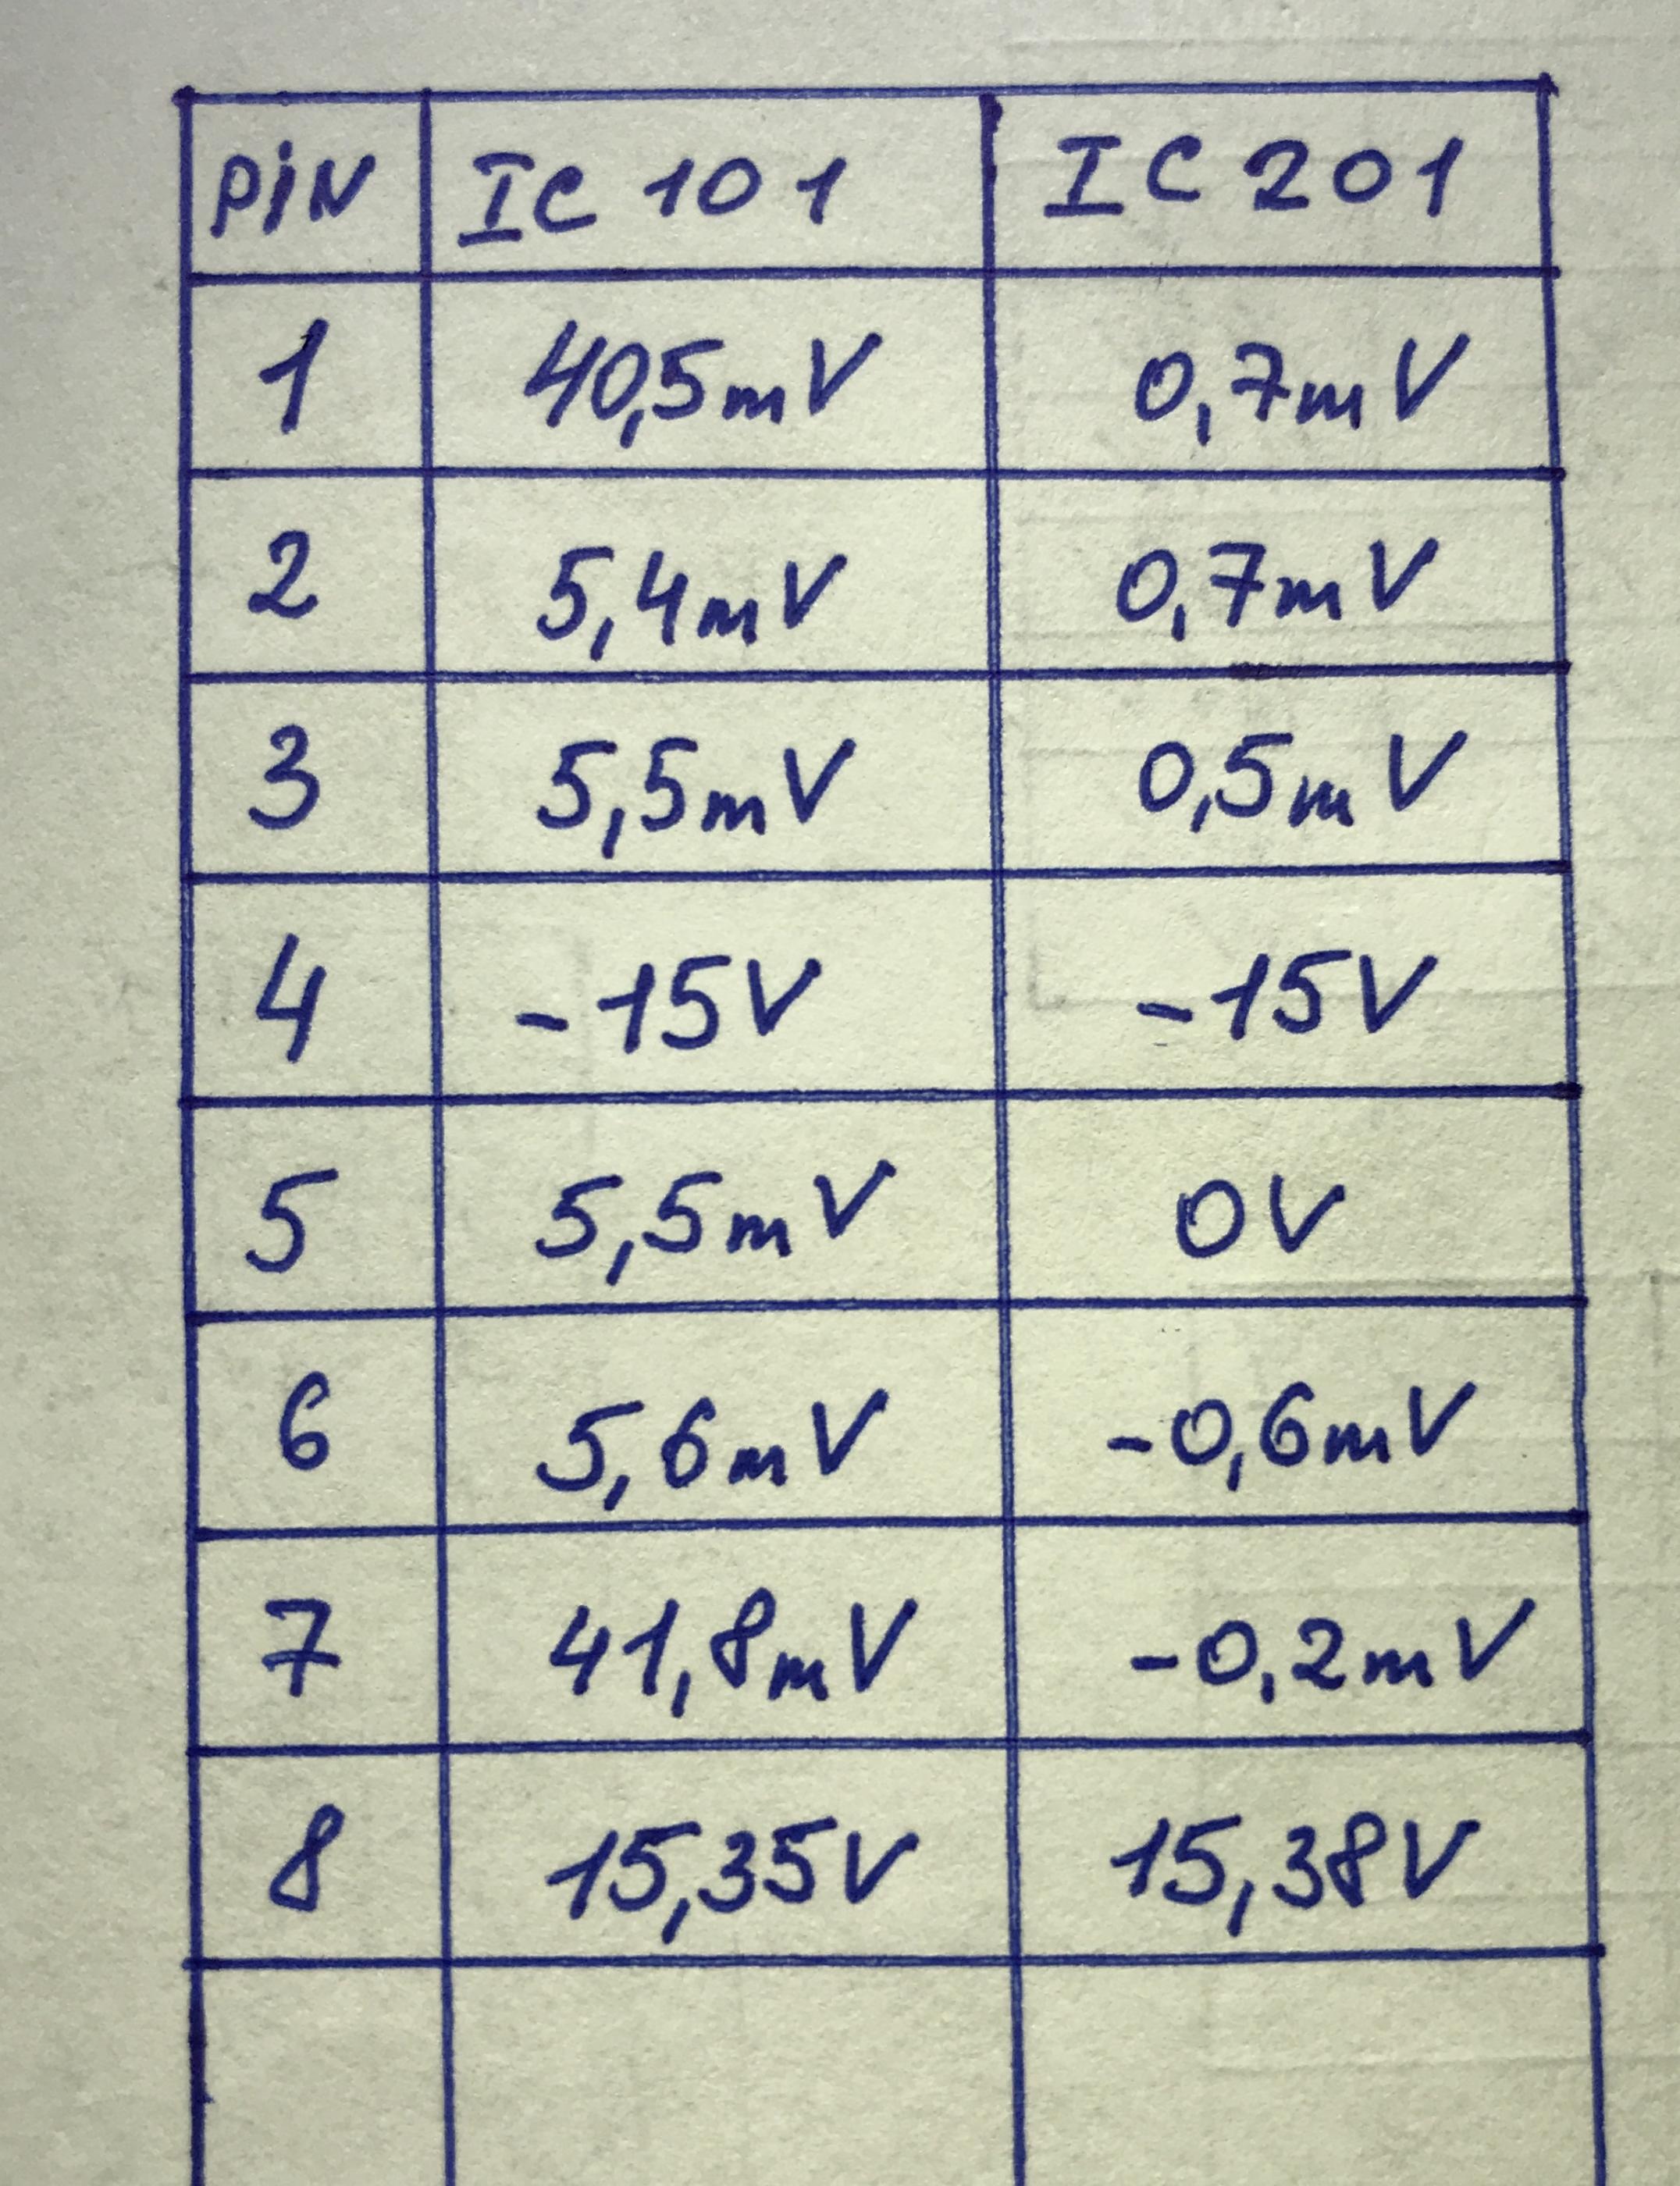 PiN IC 101 IC 201
1 40,5mV 0,7mV
2 5,4mV 0,7mV
3 5,5mV 0,5mV
4 -15V -15V
5 5,5mV 0V
6 5,6mV -0,6mV
7 41,8mV -0,2mV
8 15,35V 15,38V